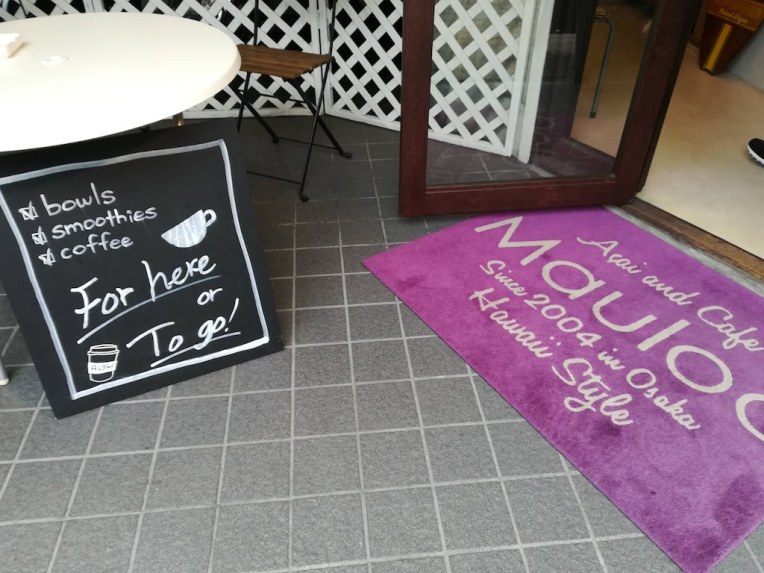 bowls
smoothies
coffee
For here
or
To go!
Açai and Cafe
Since 2004 in Osaka
Hawaii Style